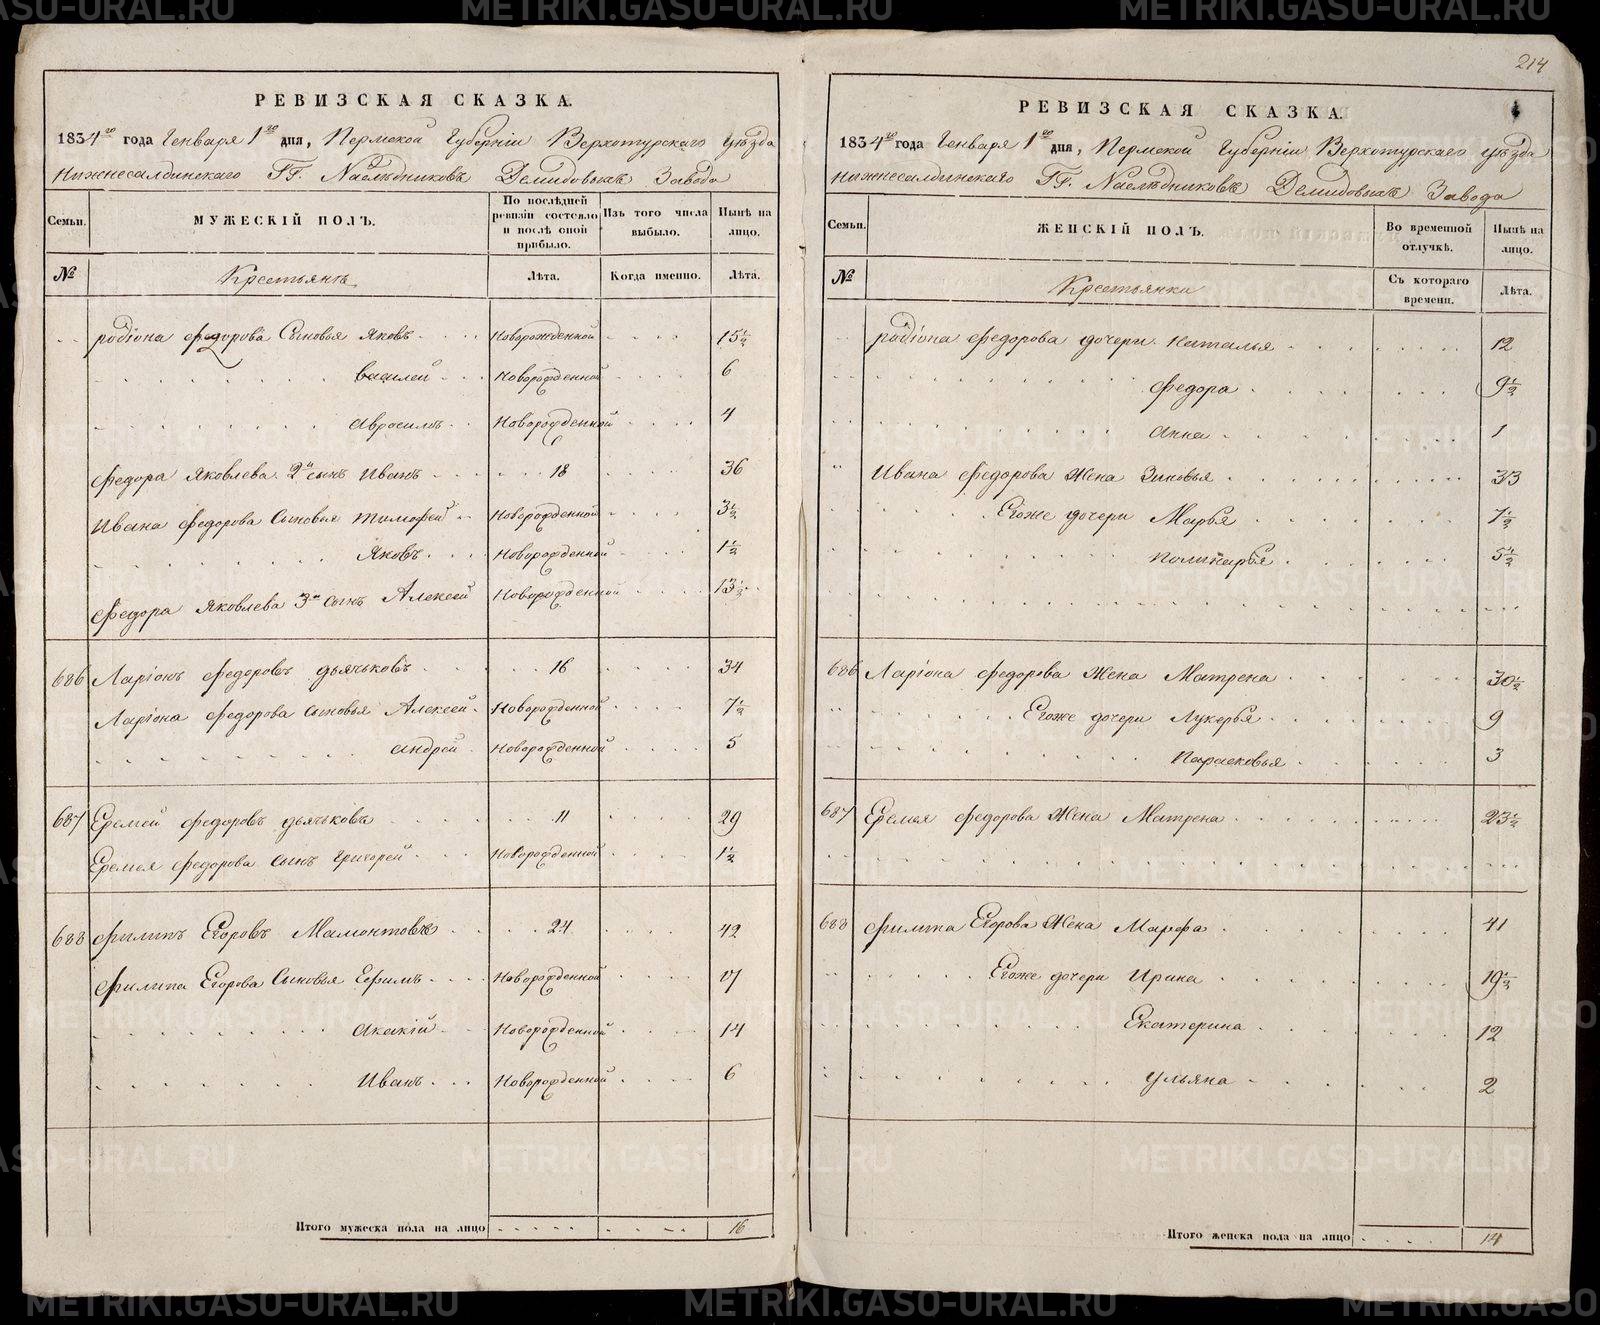 214
РЕВИЗСКАЯ СКАЗКА.
1834го года Генваря 1го дня, Пермской Губерніи Верхотурскаго уѣзда
Нижнесалдинскаго ГГ. Наслѣдниковъ Демидовыхъ Завода
Семьи. МУЖЕСКІЙ ПОЛЪ. По послѣдней ревизіи состояло и послѣ оной прибыло. Изъ того числа выбыло. Нынѣ на лицо.
№ Крестьянъ Лѣта. Когда именно. Лѣта.
родіона федорова Сыновья Яковъ Новорожденной 15½
Василей Новорожденной 6
Авросимъ Новорожденной 4
федора Яковлева 2й сынъ Иванъ 18 36
Ивана федорова Сыновья тимофей Новорожденной 3½
Яковъ Новорожденной 1½
федора Яковлева 3й сынъ Алексей Новорожденной 13½
686 Ларіонъ федоровъ дьячьковъ 16 34
Ларіона федорова сыновья Алексей Новорожденной 7½
андрей Новорожденной 5
687 Еремей федоровъ дьячьковъ 11 29
Еремея федорова сынъ григорей Новорожденной 1½
688 филипъ Егоровъ Мамонтовъ 24 42
филипа Егорова Сыновья Ефимъ Новорожденной 17
Акакій Новорожденной 14
Иванъ Новорожденной 6
Итого мужеска пола на лицо 16
РЕВИЗСКАЯ СКАЗКА.
1834го года Генваря 1го дня, Пермской Губерніи Верхотурскаго уѣзда
Нижнесалдинскаго ГГ. Наслѣдниковъ Демидовыхъ Завода
Семьи. ЖЕНСКІЙ ПОЛЪ. Во временной отлучкѣ. Нынѣ на лицо.
№ Крестьянки Съ котораго времени. Лѣта.
родіона федорова дочери Наталья 12
федора 9½
анна 1
Ивана федорова Жена Зиновья 33
Егоже дочери Марья 7½
Полинарья 5½
686 Ларіона федорова Жена Матрена 30½
Егоже дочери Лукерья 9
Парасковья 3
687 Еремея федорова Жена Матрена 23½
688 филипа Егорова Жена Марфа 41
Егоже дочери Ирина 19½
Екатерина 12
Ульяна 2
Итого женска пола на лицо 14
METRIKI.GASO-URAL.RU